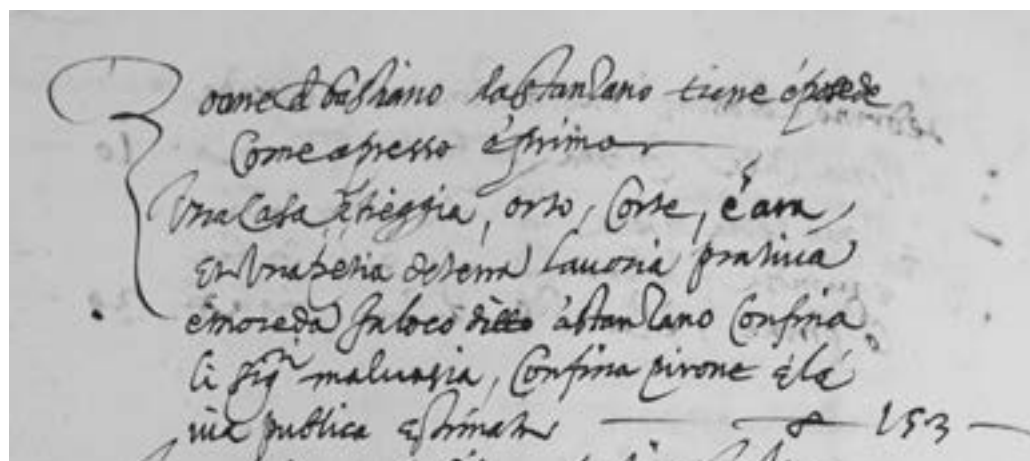 Zoane d bastiano da stanzano tiene é posede
Come apresso é prima
Una Casa teggia, orto, Corte, é ara
Et Una petia de terra lauoria pratiua
é moreda In loco ditto á stanzano Confina
li sig.ri maluasia, Confina pirone é la
uia publica estimati 153